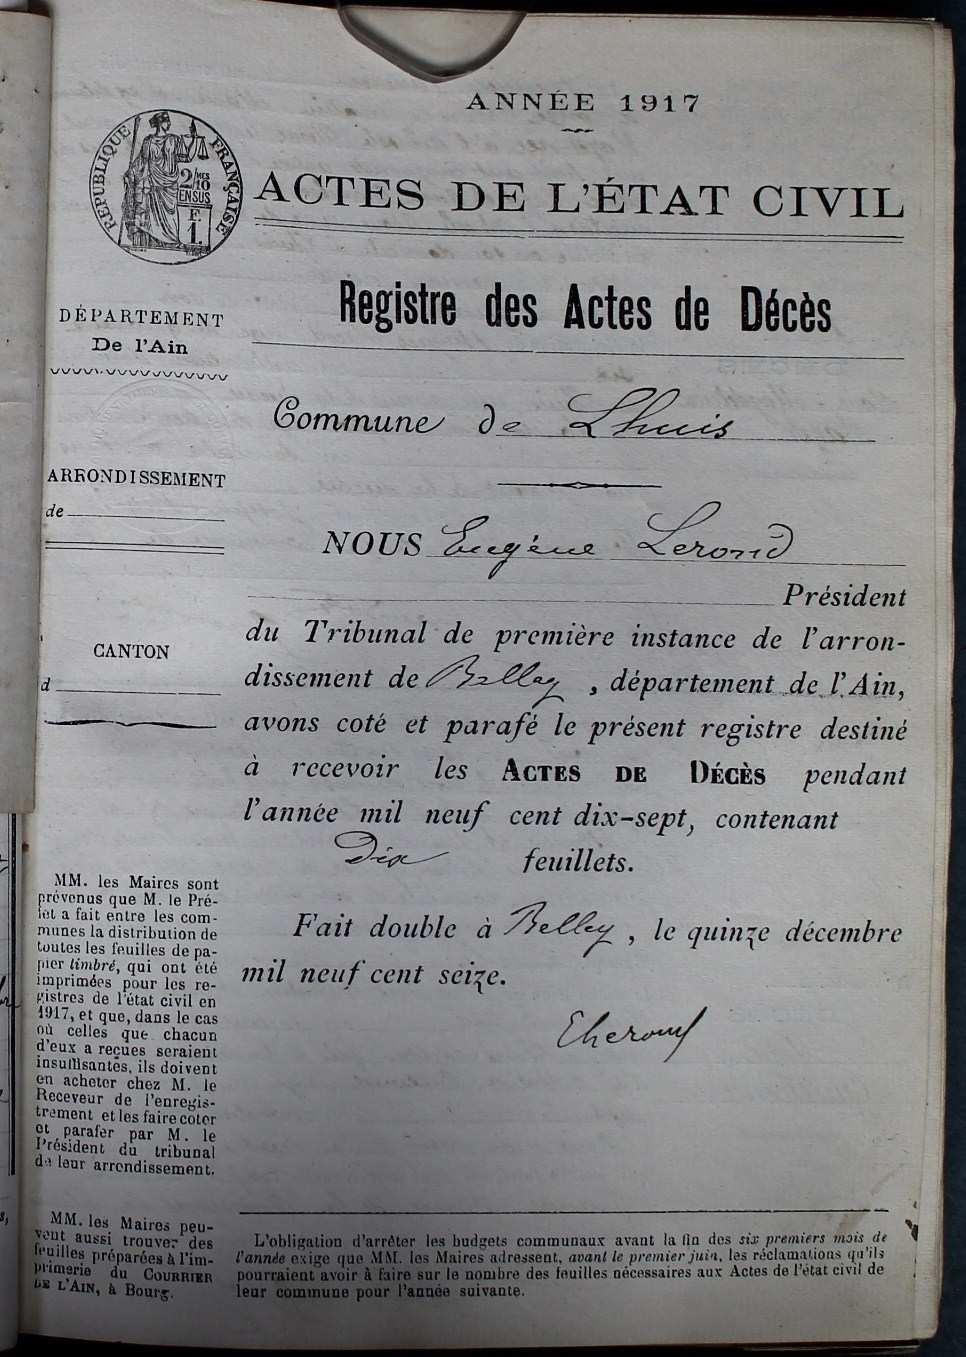 ANNÉE 1917
RÉPUBLIQUE FRANÇAISE
2/10MES
EN SUS
F.
1.
ACTES DE L'ÉTAT CIVIL
Registre des Actes de Décès
DÉPARTEMENT
De l'Ain
Commune de Lhuis
ARRONDISSEMENT
de
NOUS Eugène Lerond
Président
du Tribunal de première instance de l'arron-
dissement de Belley, département de l'Ain,
avons coté et parafé le présent registre destiné
à recevoir les ACTES DE DÉCÈS pendant
l'année mil neuf cent dix-sept, contenant
Dix feuillets.
Fait double à Belley, le quinze décembre
mil neuf cent seize.
CANTON
d
MM. les Maires sont
prévenus que M. le Pré-
fet a fait entre les com-
munes la distribution de
toutes les feuilles de pa-
pier timbré, qui ont été
imprimées pour les re-
gistres de l'état civil en
1917, et que, dans le cas
où celles que chacun
d'eux a reçues seraient
insuffisantes, ils doivent
en acheter chez M. le
Receveur de l'enregis-
trement et les faire coter
et parafer par M. le
Président du tribunal
de leur arrondissement.
MM. les Maires peu-
vent aussi trouver des
feuilles préparées à l'im-
primerie du COURRIER
DE L'AIN, à Bourg.
L'obligation d'arrêter les budgets communaux avant la fin des six premiers mois de
l'année exige que MM. les Maires adressent, avant le premier juin, les réclamations qu'ils
pourraient avoir à faire sur le nombre des feuilles nécessaires aux Actes de l'état civil de
leur commune pour l'année suivante.